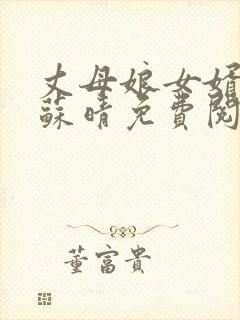 丈母娘女婿
蘇晴免費閱
董富貴